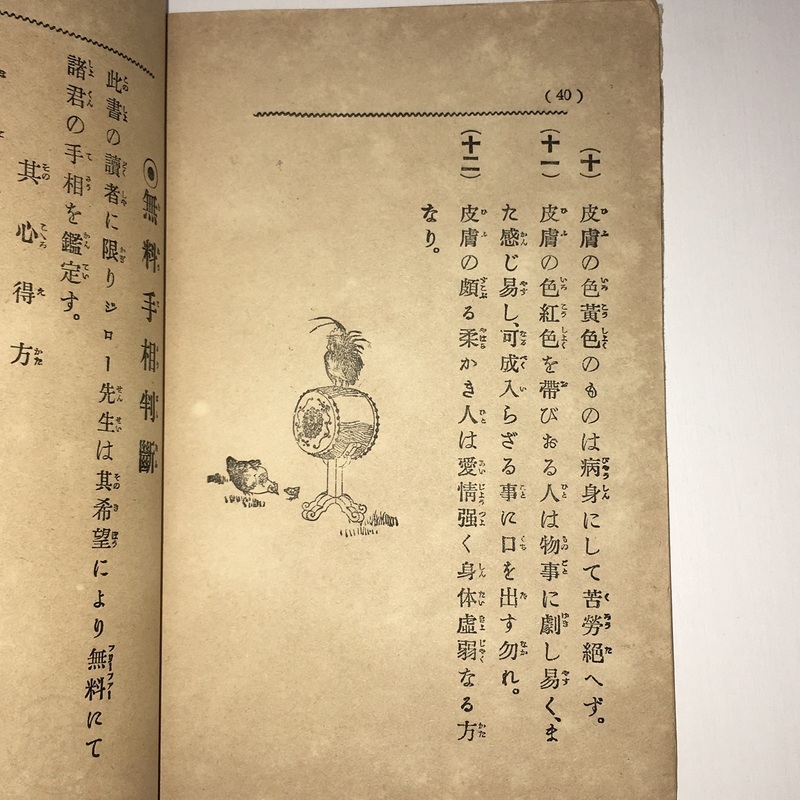 (40)
(十) 皮膚の色黃色のものは病身にして苦勞絕へず。
(十一) 皮膚の色紅色を帶びおる人は物事に劇し易く、ま
た感じ易し、可成入らざる事に口を出す勿れ。
(十二) 皮膚の頗る柔かき人は愛情强く身体虛弱なる方
なり。
◉無料手相判斷
此書の讀者に限りジロー先生は其希望により無料にて
諸君の手相を鑑定す。
其心得方